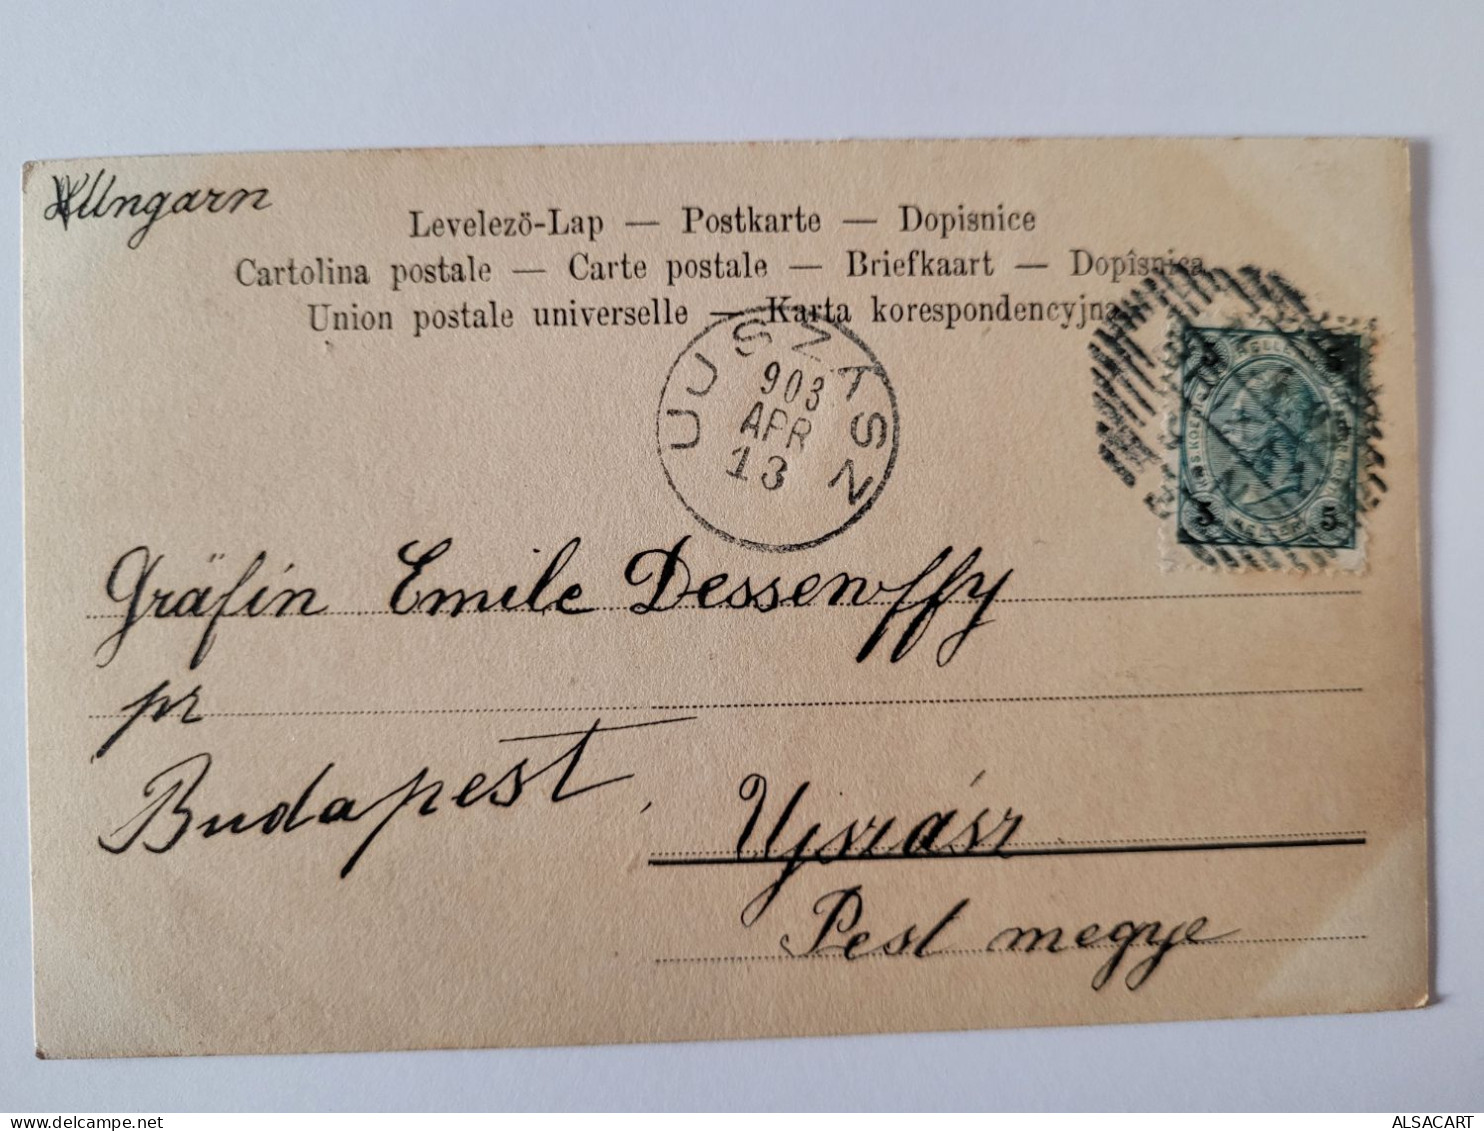 Ungarn
Levelezö-Lap — Postkarte — Dopisnice
Cartolina postale — Carte postale — Briefkaart — Dopîsnica
Union postale universelle — Karta korespondencyjna
903
APR
13
5 5
5 5
HELLER
Gräfin Emile Dessewffy
pr
Budapest, Ujszász
Pest megye
ALSACART